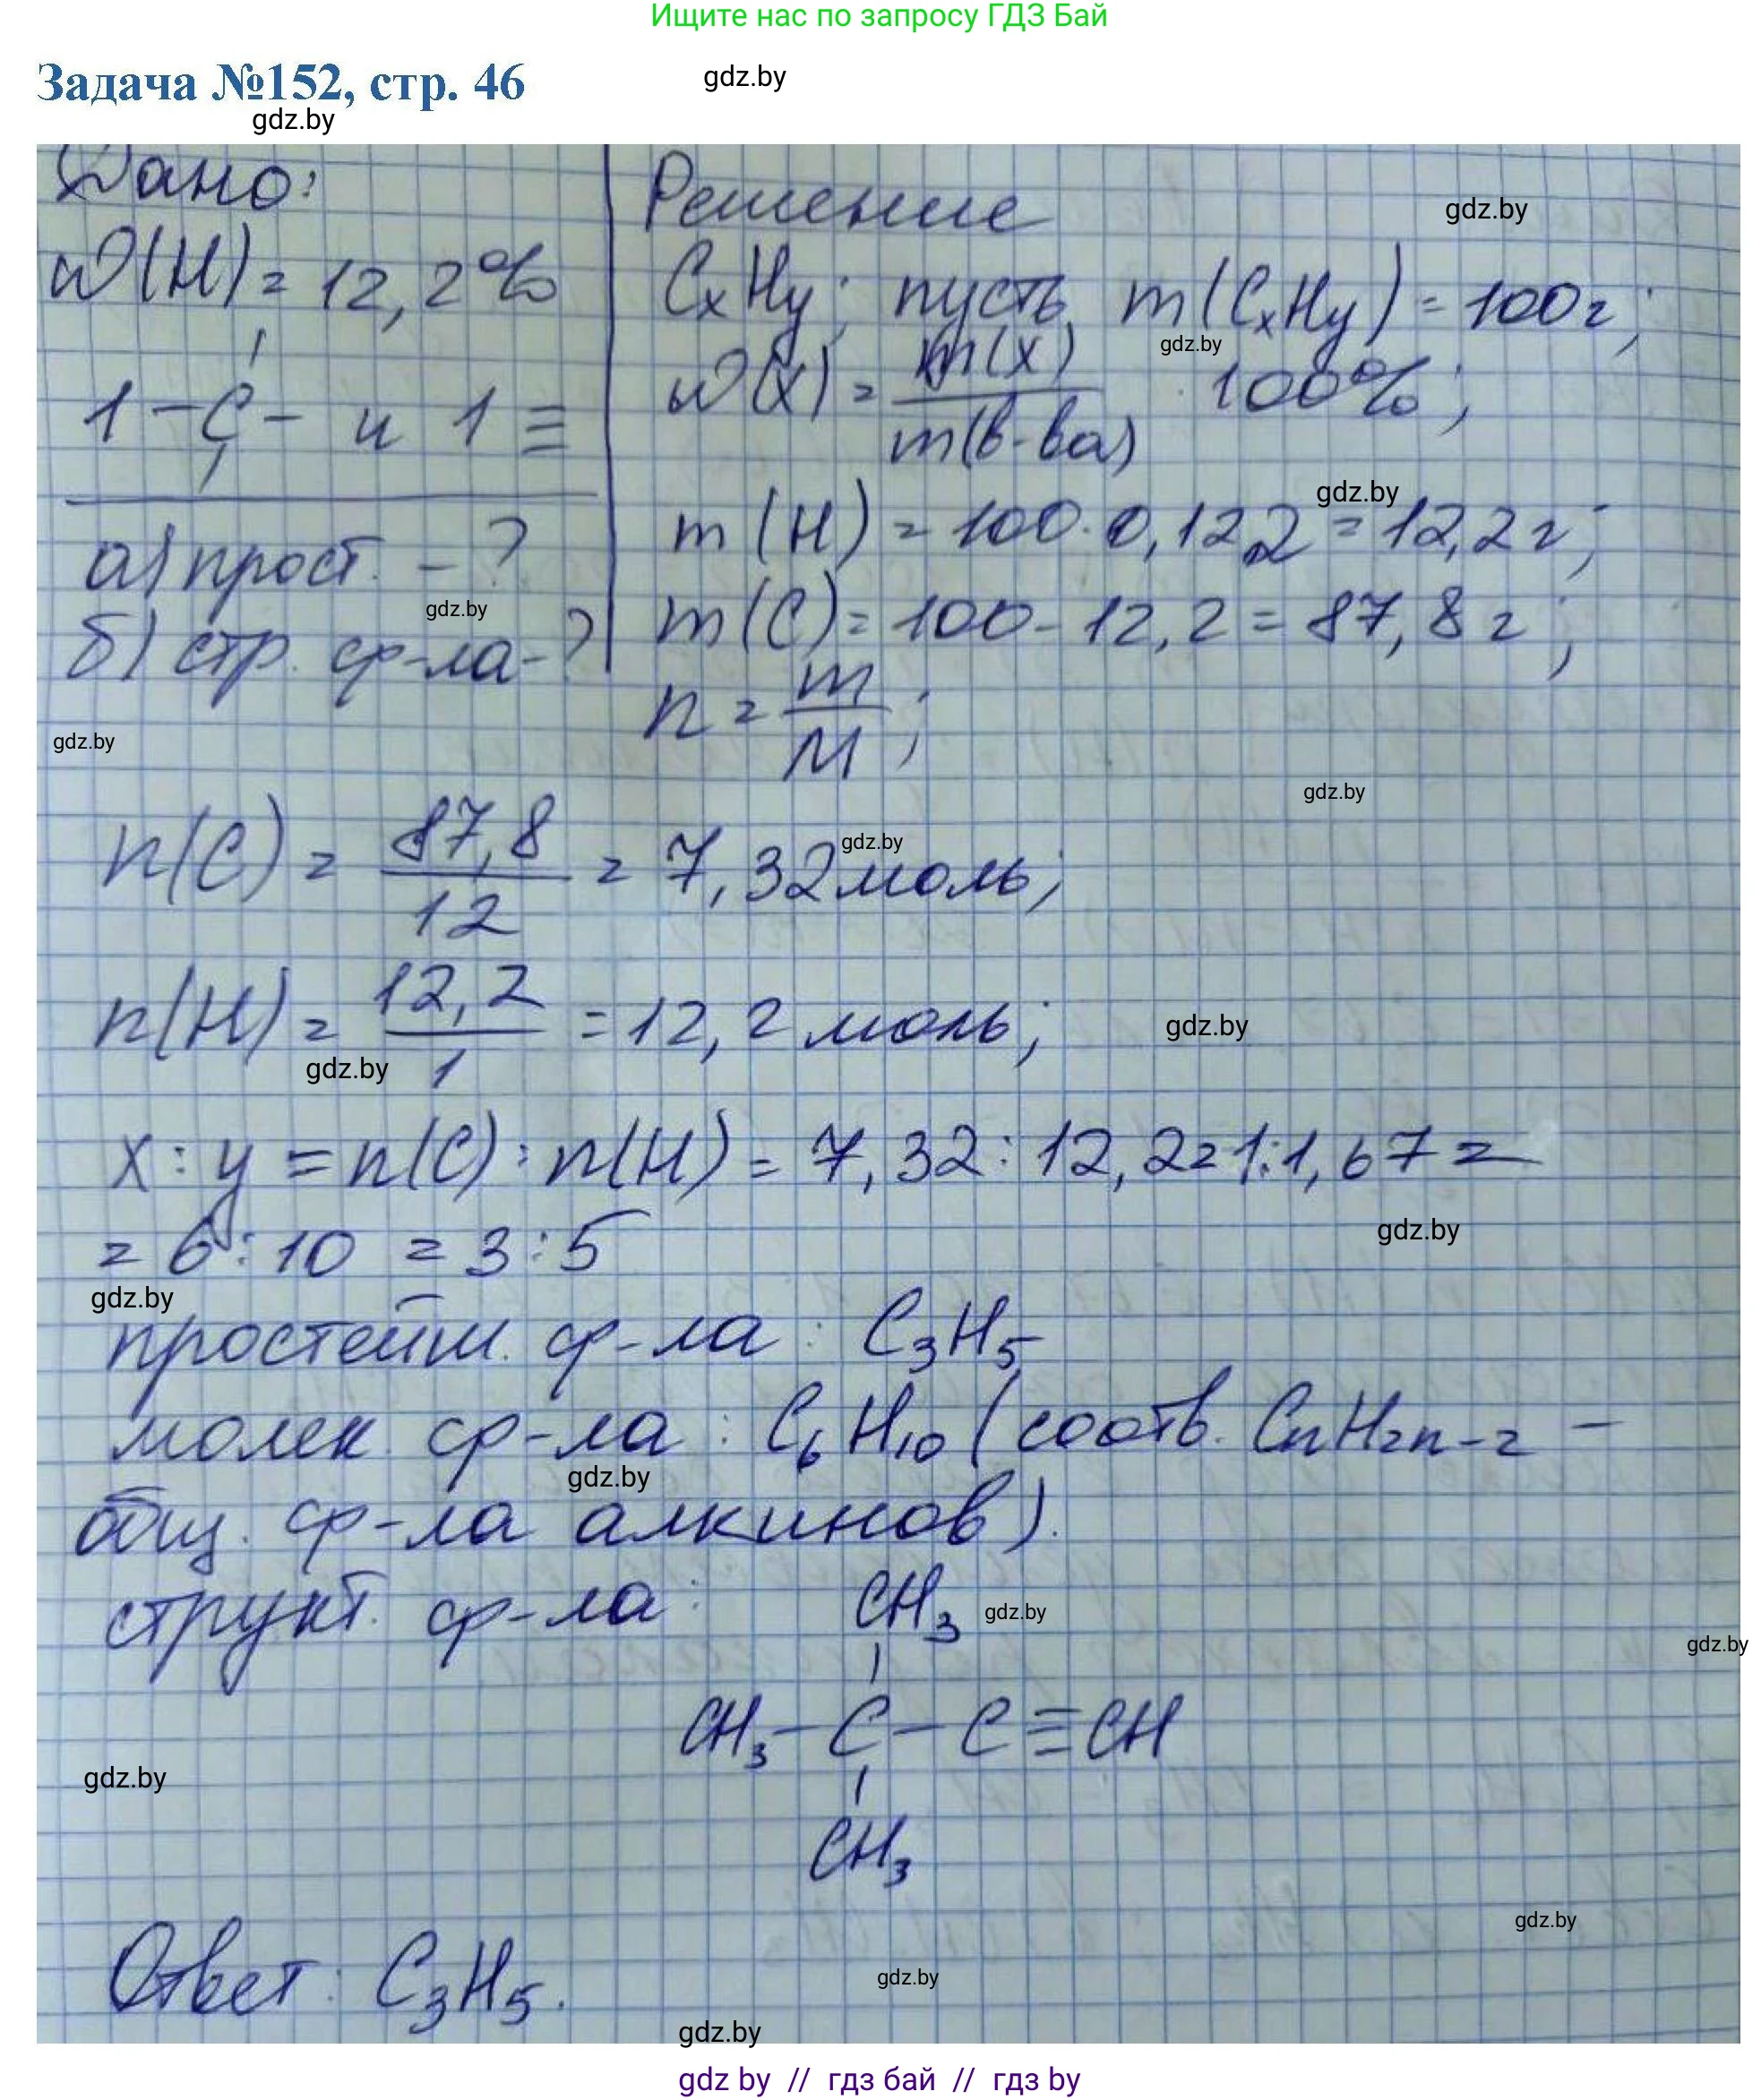 Ищите нас по запросу ГДЗ Бай
Задача №152, стр. 46
gdz.by
gdz.by
Дано:
Решение
gdz.by
ω(H) = 12,2%
CxHy; пусть m(CxHy) = 100г;
gdz.by
1 -C- и 1 ≡
ω(x) = m(x) / m(в-ва) · 100%;
gdz.by
m(H) = 100·0,122 = 12,2г;
а) прост. - ?
gdz.by
m(C) = 100 - 12,2 = 87,8г;
б) стр. ф-ла - ?
n = m / M;
gdz.by
gdz.by
n(C) = 87,8 / 12 = 7,32моль;
gdz.by
n(H) = 12,2 / 1 = 12,2 моль;
gdz.by
gdz.by
x : y = n(C) : n(H) = 7,32 : 12,2 = 1:1,67 =
= 6 : 10 = 3 : 5
gdz.by
gdz.by
простейш. ф-ла : C₃H₅
молек. ф-ла : C₆H₁₀ (соотв. CnH2n-2 -
gdz.by
общ. ф-ла алкинов).
структ. ф-ла :
CH₃
gdz.by
gdz.by
CH₃ - C - C ≡ CH
gdz.by
CH₃
gdz.by
Ответ : C₃H₅.
gdz.by
gdz.by
gdz by // гдз бай // гдз by